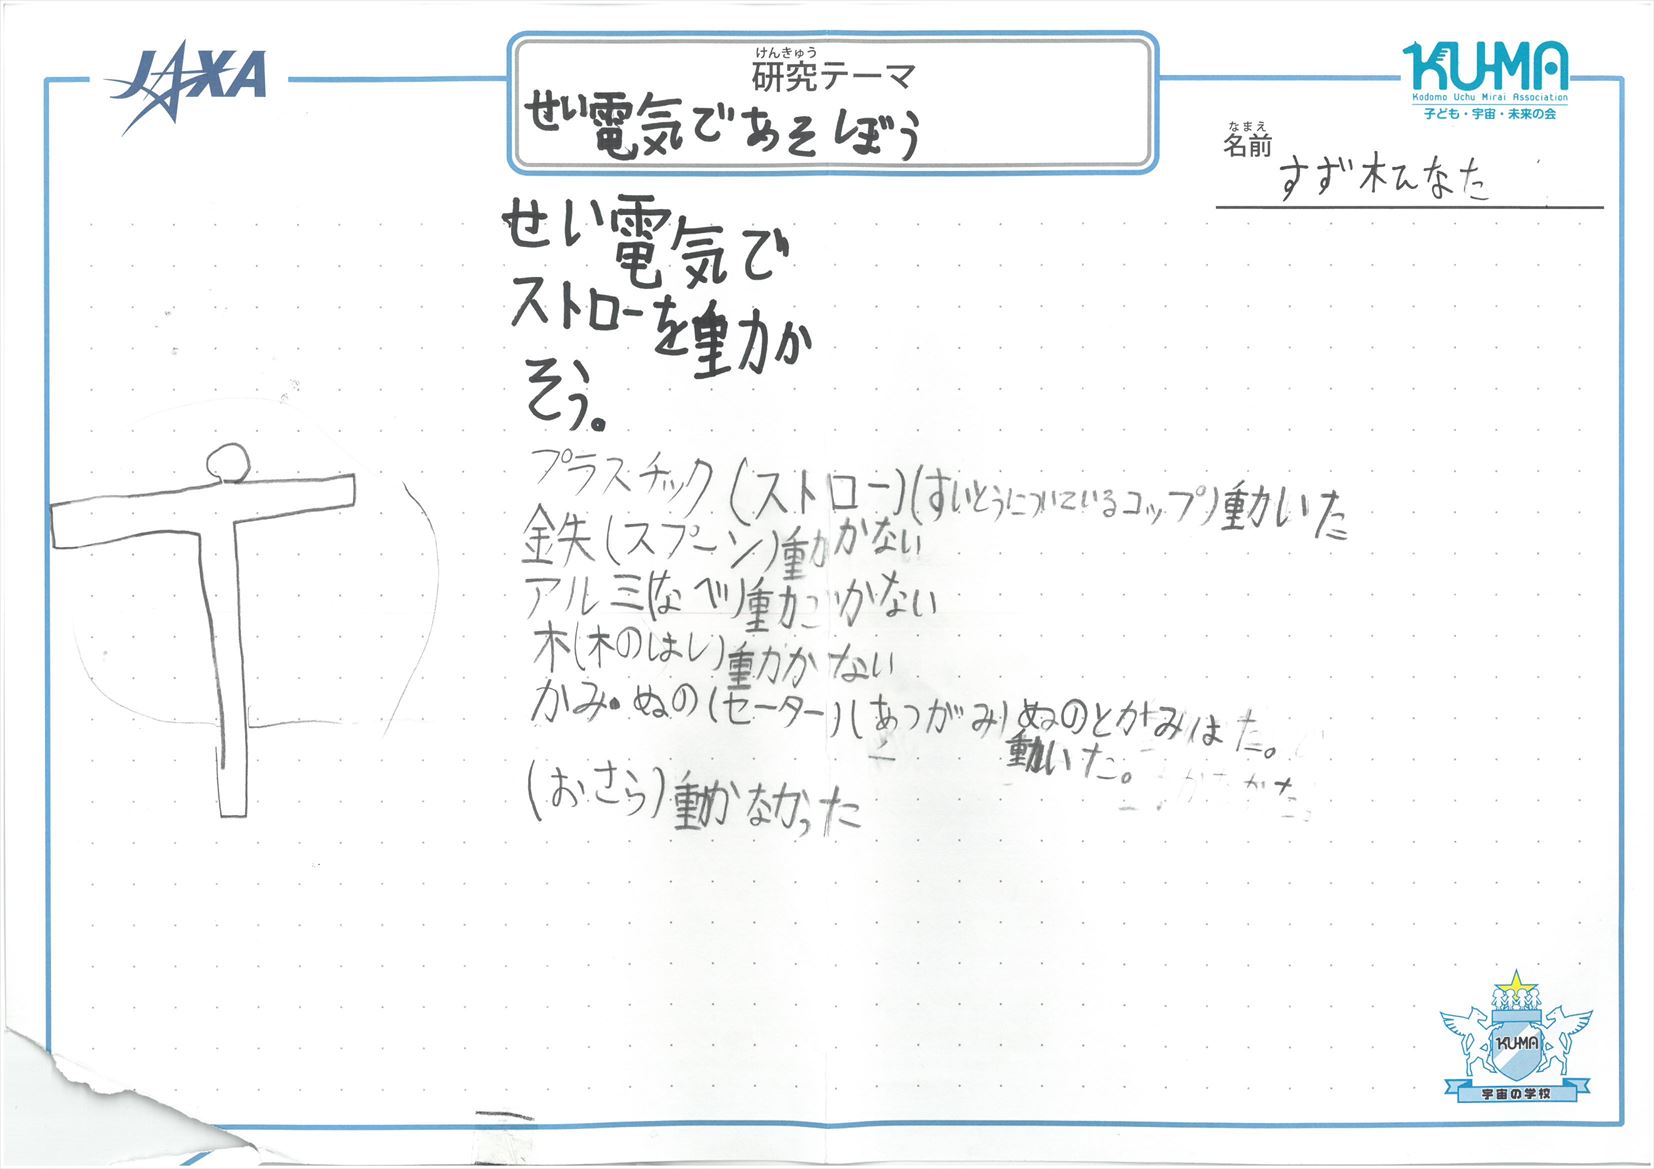 JAXA
けんきゅう
研究テーマ
せい電気であそぼう
KU-MA
Kodomo Uchu Mirai Association
子ども・宇宙・未来の会
なまえ
名前
すず木ひなた
せい電気で
ストローを動か
そう。
プラスチック(ストロー)(すいとうについているコップ)動いた
鉄(スプーン)動かない
アルミ(なべ)動かない
木(木のはし)動かない
かみ・ぬの(セーター)(あつがみ)ぬのとかみは
動いた。
(おさら)動かなかった
KU-MA
宇宙の学校